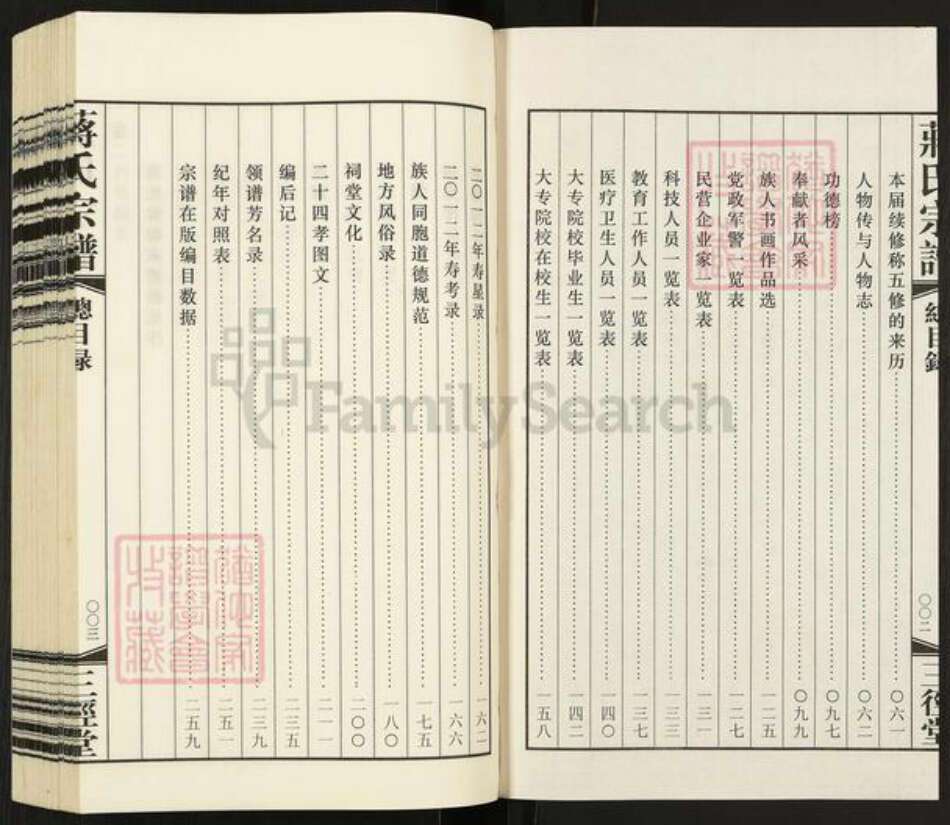 蔣氏宗譜
總目錄
〇〇二
三徑堂
本届续修称五修的来历 〇六一
人物传与人物志 〇六二
功德榜 〇九七
奉献者风采 〇九九
族人书画作品选 一二五
党政军警一览表 一二七
民营企业家一览表 一三一
科技人员一览表 一三三
教育工作人员一览表 一三七
医疗卫生人员一览表 一四〇
大专院校毕业生一览表 一四二
大专院校在校生一览表 一五八
二〇一二年寿星录 一六二
二〇一二年寿考录 一六六
族人同胞道德规范 一七五
地方风俗录 一八〇
祠堂文化 二〇〇
二十四孝图文 二一一
编后记 二三五
领谱芳名录 二三九
纪年对照表 二五一
宗谱在版编目数据 二五九
蔣氏宗譜
總目錄
〇〇三
三徑堂
FamilySearch